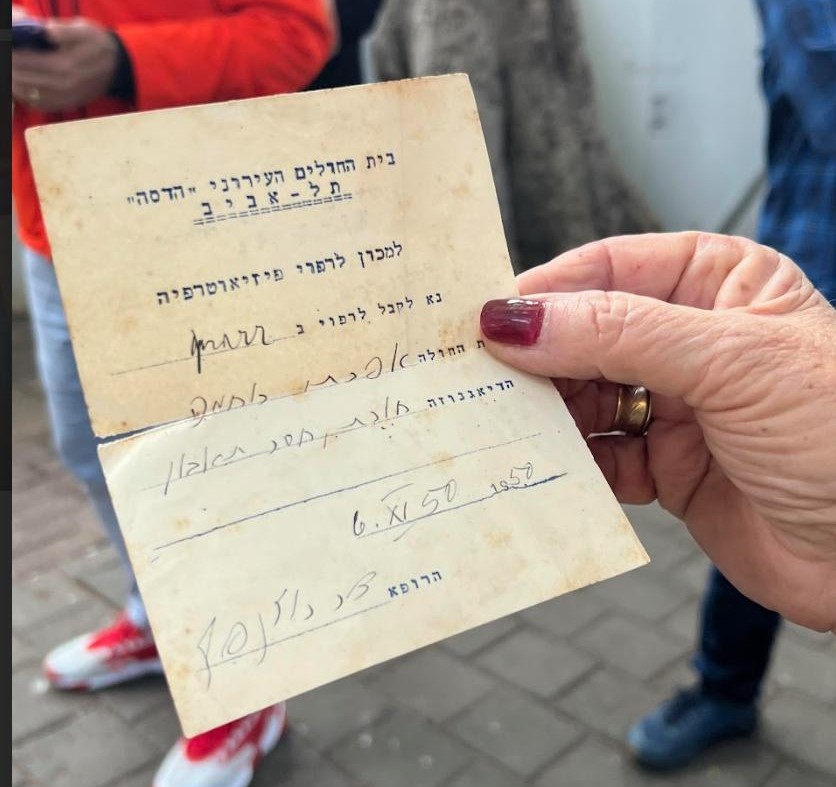 בית החולים העירוני "הדסה"
תל-אביב
למכון לרפוי פיזיאוטרפיה
נא לקבל לרפוי ב
ת החולה אפרתי נחמה
הדיאגנוזה חולת, חסר תאבון
6.XI 50 1950
הרופא ד"ר